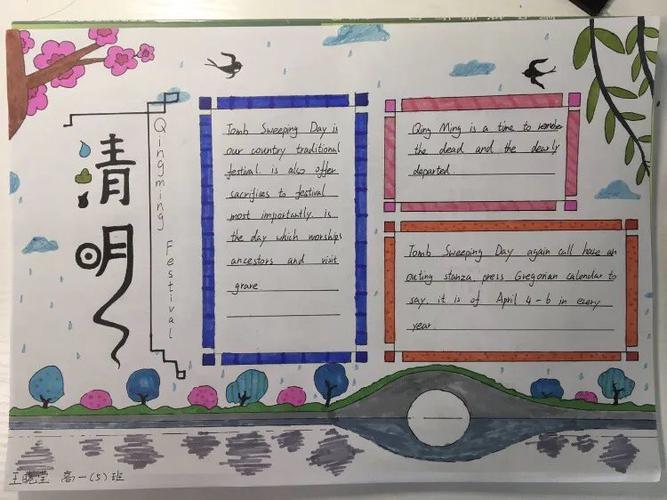 清明
Qingming Festival
Tomb Sweeping Day is
our country traditional
festival. is also offer
sacrifices to festival
most importantly is
the day which worships
ancestors and visit
grave
Qing Ming is a time to remember
the dead and the dearly
departed
Tomb Sweeping Day again call have an
outing stanza press Gregorian calendar to
say, it is of April 4-6 in every
year.
王晓莹 高一(5)班